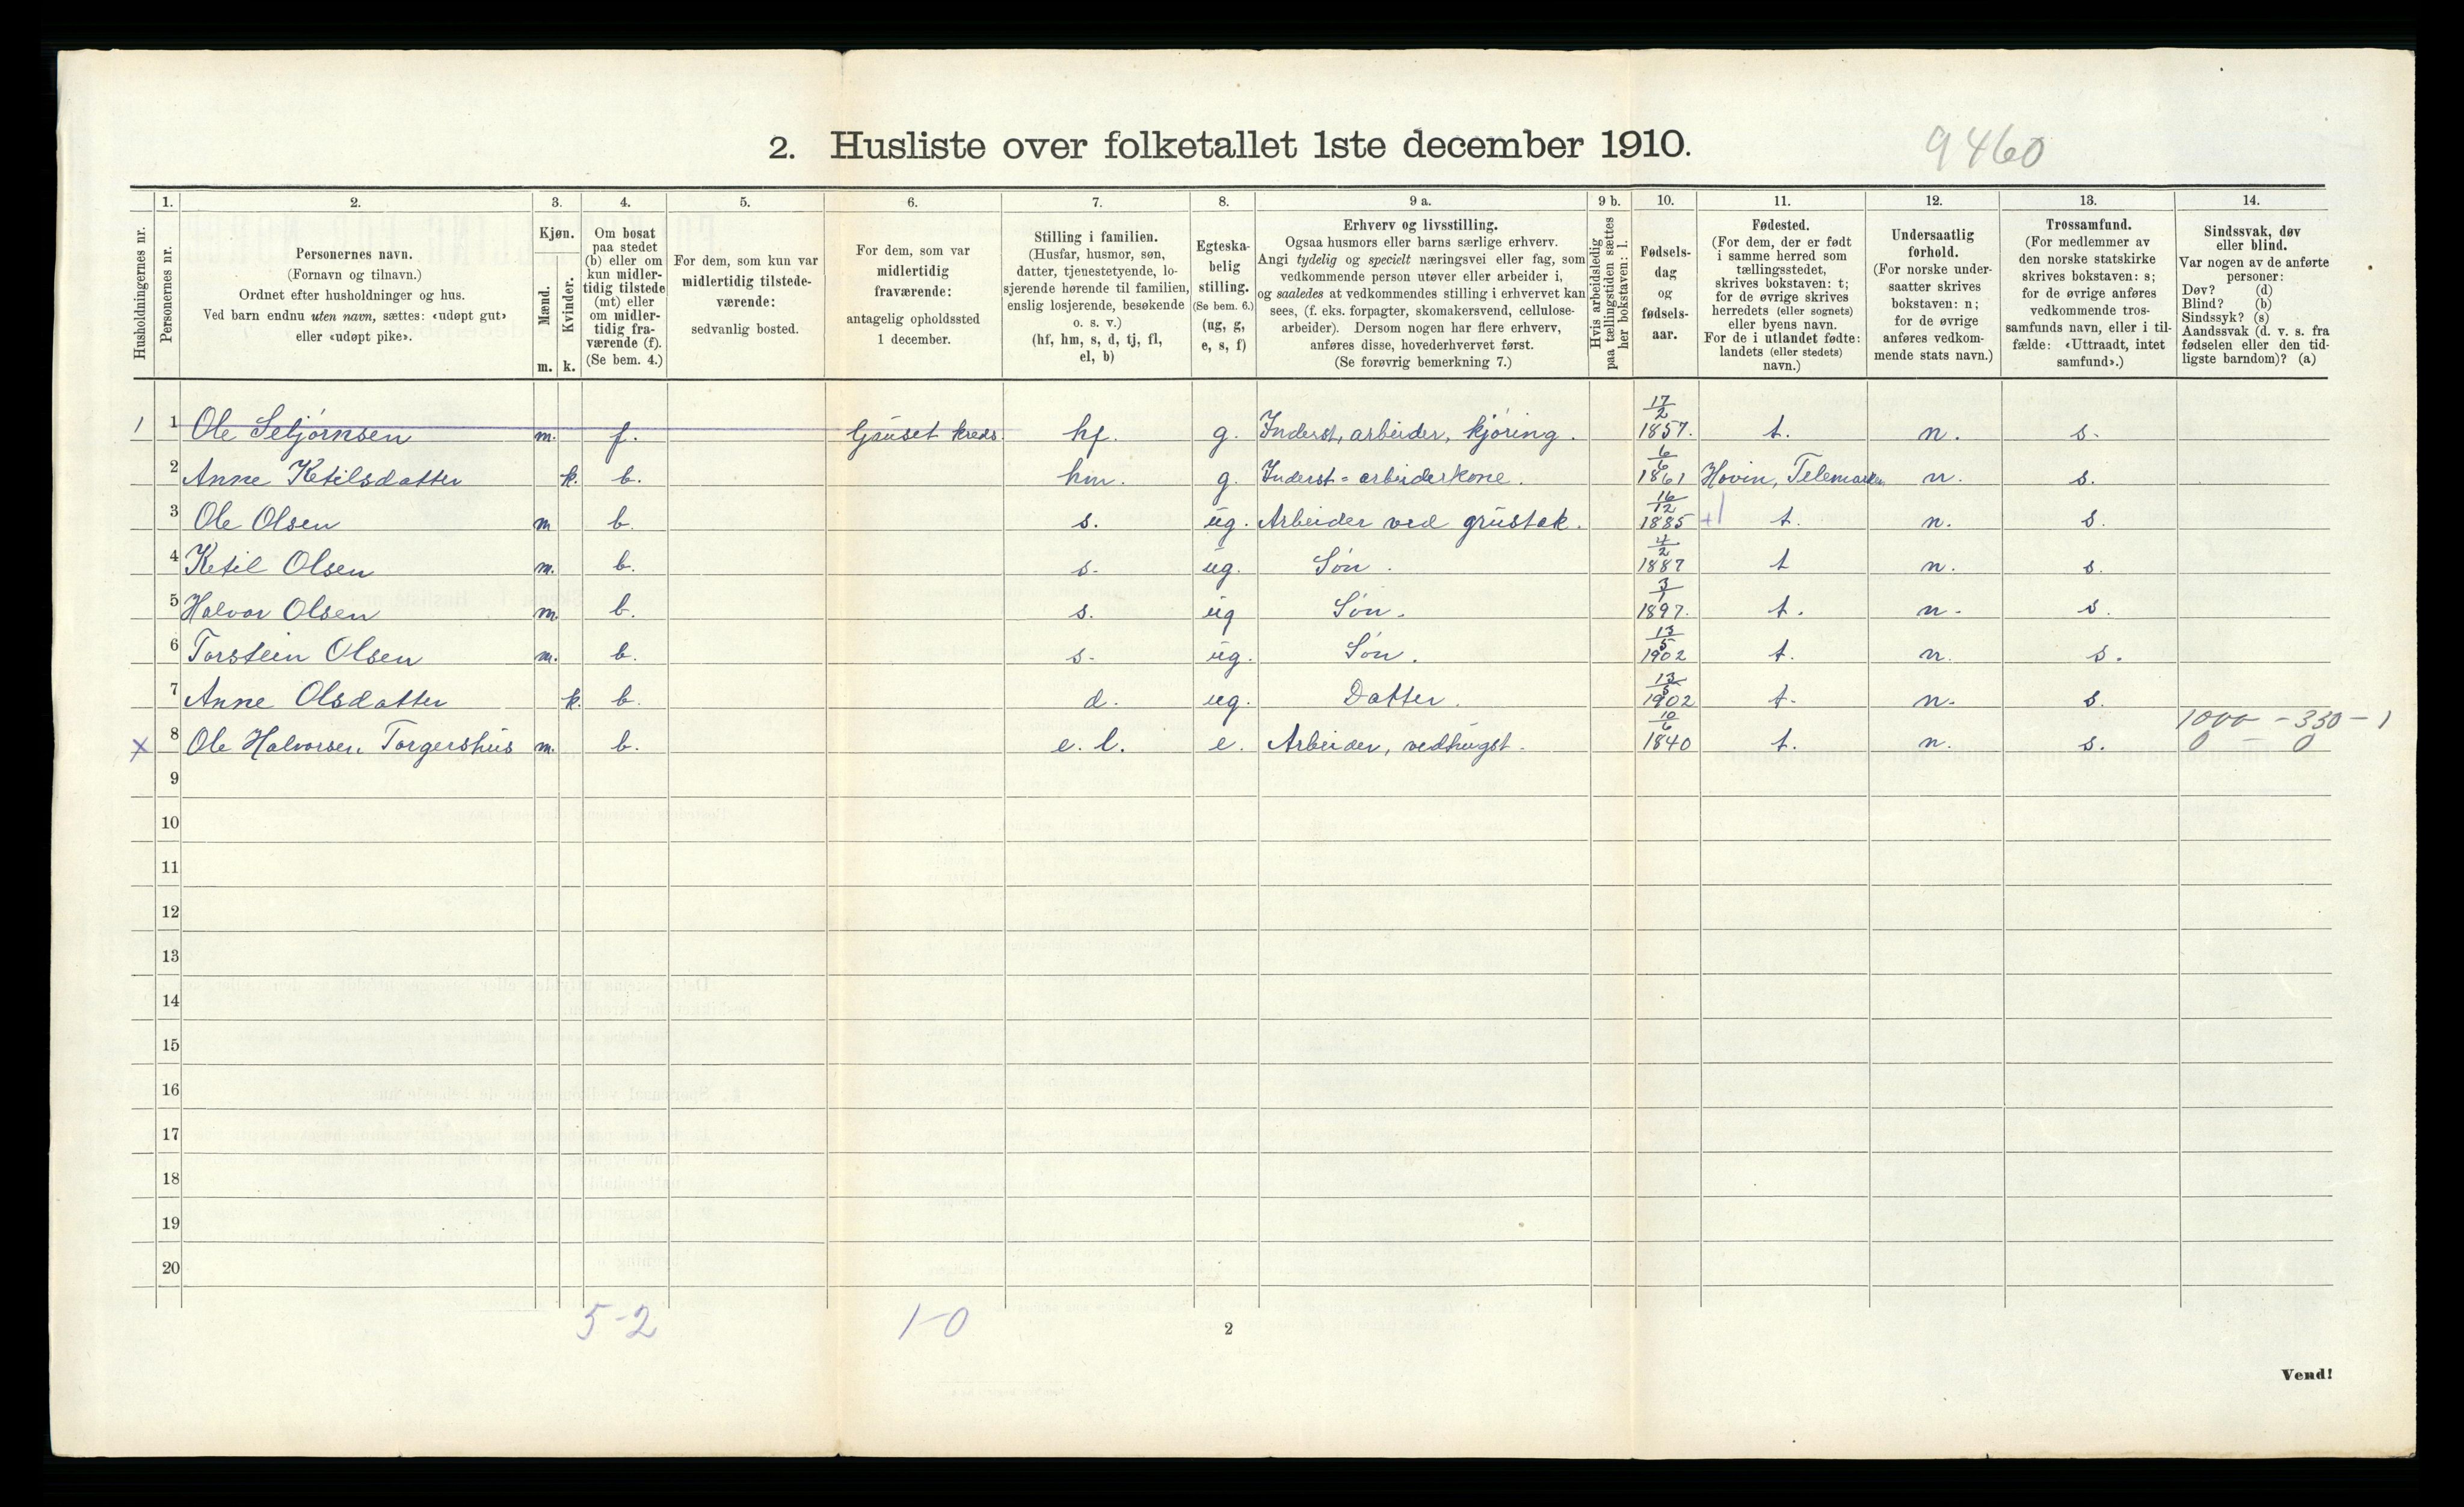 2. Husliste over folketallet 1ste december 1910.
9460
Husholdningernes nr.
1.
Personernes nr.
2.
Personernes navn.
(Fornavn og tilnavn.)
Ordnet efter husholdninger og hus.
Ved barn endnu uten navn, sættes: «udøpt gut»
eller «udøpt pike».
3.
Kjøn.
Mænd.
Kvinder.
m. k.
4.
Om bosat
paa stedet
(b) eller om
kun midler-
tidig tilstede
(mt) eller
om midler-
tidig fra-
værende (f).
(Se bem. 4.)
5.
For dem, som kun var
midlertidig tilstede-
værende:
sedvanlig bosted.
6.
For dem, som var
midlertidig
fraværende:
antagelig opholdssted
1 december.
7.
Stilling i familien.
(Husfar, husmor, søn,
datter, tjenestetyende, lo-
sjerende hørende til familien,
enslig losjerende, besøkende
o. s. v.)
(hf, hm, s, d, tj, fl,
el, b)
8.
Egteska-
belig
stilling.
(Se bem. 6.)
(ug, g,
e, s, f)
9 a.
Erhverv og livsstilling.
Ogsaa husmors eller barns særlige erhverv.
Angi tydelig og specielt næringsvei eller fag, som
vedkommende person utøver eller arbeider i,
og saaledes at vedkommendes stilling i erhvervet kan
sees, (f. eks. forpagter, skomakersvend, cellulose-
arbeider). Dersom nogen har flere erhverv,
anføres disse, hovederhvervet først.
(Se forøvrig bemerkning 7.)
9 b.
Hvis arbeidsledig
paa tællingstiden sættes
her bokstaven: l.
10.
Fødsels-
dag
og
fødsels-
aar.
11.
Fødested.
(For dem, der er født
i samme herred som
tællingsstedet,
skrives bokstaven: t;
for de øvrige skrives
herredets (eller sognets)
eller byens navn.
For de i utlandet fødte:
landets (eller stedets)
navn.)
12.
Undersaatlig
forhold.
(For norske under-
saatter skrives
bokstaven: n;
for de øvrige
anføres vedkom-
mende stats navn.)
13.
Trossamfund.
(For medlemmer av
den norske statskirke
skrives bokstaven: s;
for de øvrige anføres
vedkommende tros-
samfunds navn, eller i til-
fælde: «Uttraadt, intet
samfund».)
14.
Sindssvak, døv
eller blind.
Var nogen av de anførte
personer:
Døv? (d)
Blind? (b)
Sindssyk? (s)
Aandssvak (d. v. s. fra
fødselen eller den tid-
ligste barndom)? (a)
1 1 Ole Seljørnsen m. f. Gauset kreds. hf. g. Inderst, arbeider, kjøring. 17/2 1857. t. n. s.
2 Anne Ketilsdatter k. b. hm. g. Inderst = arbeiderkone. 6/6 1861 Hovin, Telemarken n. s.
3 Ole Olsen m b. s. ug. Arbeider ved grustak. 16/12 1885 t. n. s.
4 Ketil Olsen m. b. s. ug. Søn. 4/2 1887 t n. s.
5 Halvor Olsen m. b. s. ug Søn. 3/1 1897. t. n. s.
6 Torstein Olsen m. b. s. ug. Søn. 13/5 1902 t. n. s.
7 Anne Olsdatter k. b. d. ug. Datter. 13/5 1902 t. n. s.
1000 - 350 - 1
x 8 Ole Halvorsen Torgershus m. b. e. l. e. Arbeider, vedhugst. 10/6 1840 t. n. s. 0 - 0
9
10
11
12
13
14
15
16
17
18
19
20
5-2 1-0
2
Vend!